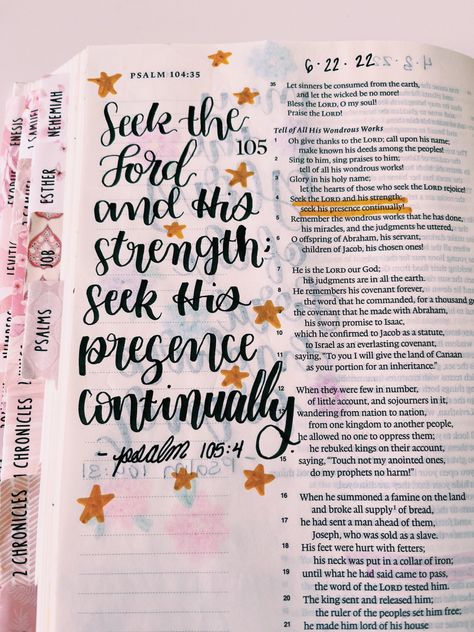 PSALM 104:35
6·22·22
Seek the
Lord
and His
strength;
seek His
presence
continually
- psalm 105:4
35 Let sinners be consumed from the earth,
and let the wicked be no more!
Bless the LORD, O my soul!
Praise the LORD!
Tell of All His Wondrous Works
105
1 Oh give thanks to the LORD; call upon his name;
make known his deeds among the peoples!
2 Sing to him, sing praises to him;
tell of all his wondrous works!
3 Glory in his holy name;
let the hearts of those who seek the LORD rejoice!
4 Seek the LORD and his strength;
seek his presence continually!
5 Remember the wondrous works that he has done,
his miracles, and the judgments he uttered,
6 O offspring of Abraham, his servant,
children of Jacob, his chosen ones!
7 He is the LORD our God;
his judgments are in all the earth.
8 He remembers his covenant forever,
the word that he commanded, for a thousand
9 the covenant that he made with Abraham,
his sworn promise to Isaac,
10 which he confirmed to Jacob as a statute,
to Israel as an everlasting covenant,
11 saying, "To you I will give the land of Canaan
as your portion for an inheritance."
12 When they were few in number,
of little account, and sojourners in it,
13 wandering from nation to nation,
from one kingdom to another people,
14 he allowed no one to oppress them;
he rebuked kings on their account,
15 saying, "Touch not my anointed ones,
do my prophets no harm!"
16 When he summoned a famine on the land
and broke all supply of bread,
17 he had sent a man ahead of them,
Joseph, who was sold as a slave.
18 His feet were hurt with fetters;
his neck was put in a collar of iron;
19 until what he had said came to pass,
the word of the LORD tested him.
20 The king sent and released him;
the ruler of the peoples set him free;
21 he made him lord of his house
NEHEMIAH
ESTHER
JOB
PSALMS
GENESIS
1 SAMUEL
EXODUS
LEVITIC
NUMBERS
1 CHRONICLES
2 CHRONICLES